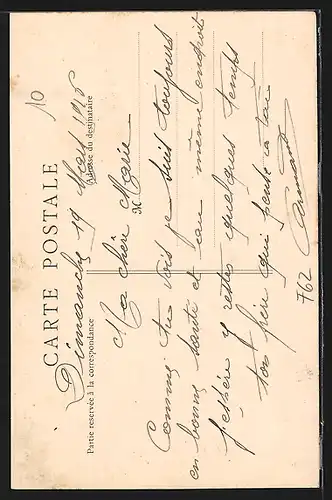 10
CARTE POSTALE
Dimanche 19 Mars 1916
Partie reservée à la correspondance
Adresse du destinataire
M
Ma chère Marie
Comme tu vois je suis toujours
en bonne santé et au même endroit
j'espère y rester quelques temps
ton frère qui pense à toi
762